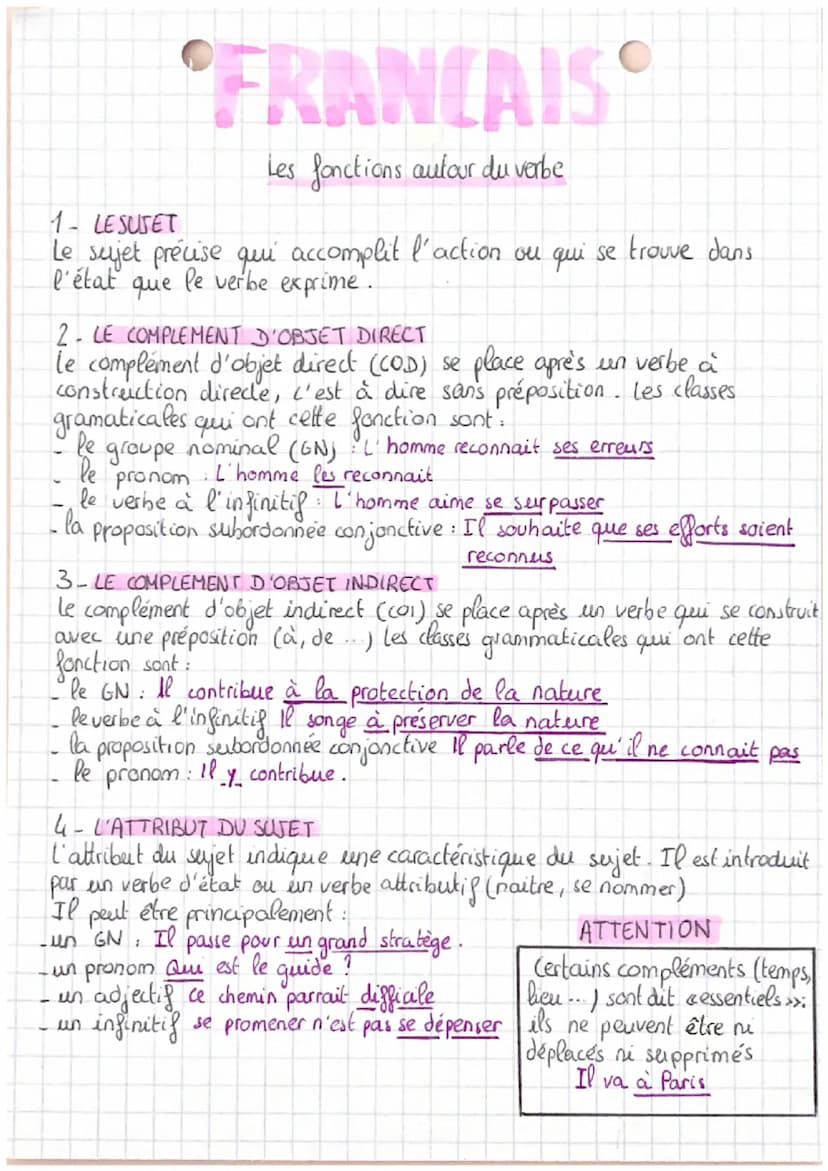 FRANCAIS
Les fonctions autour du verbe
1 - LE SUJET
Le sujet précise qui accomplit l'action ou qui se trouve dans
l'état que le verbe exprime.
2 - LE COMPLEMENT D'OBJET DIRECT
Le complément d'objet direct (COD) se place après un verbe à
construction directe, c'est à dire sans préposition. Les classes
gramaticales qui ont cette fonction sont :
- le groupe nominal (GN) : L'homme reconnait ses erreurs
- le pronom : L'homme les reconnait
- le verbe à l'infinitif : L'homme aime se surpasser
- la proposition subordonnée conjonctive : Il souhaite que ses efforts soient
reconnus
3 - LE COMPLEMENT D'OBJET INDIRECT
Le complément d'objet indirect (COI) se place après un verbe qui se construit
avec une préposition (à, de ...) Les classes grammaticales qui ont cette
fonction sont :
- le GN : Il contribue à la protection de la nature
- le verbe à l'infinitif Il songe à préserver la nature
- la proposition subordonnée conjonctive Il parle de ce qu'il ne connait pas
- le pronom : Il y contribue.
4 - L'ATTRIBUT DU SUJET
L'attribut du sujet indique une caractéristique du sujet. Il est introduit
par un verbe d'état ou un verbe attributif (naitre, se nommer)
Il peut être principalement :
- un GN : Il passe pour un grand stratège.
- un pronom Qui est le guide ?
- un adjectif ce chemin parrait difficile
- un infinitif se promener n'est pas se dépenser
ATTENTION
Certains compléments (temps,
lieu ...) sont dit «essentiels»:
ils ne peuvent être ni
déplacés ni supprimés
Il va à Paris